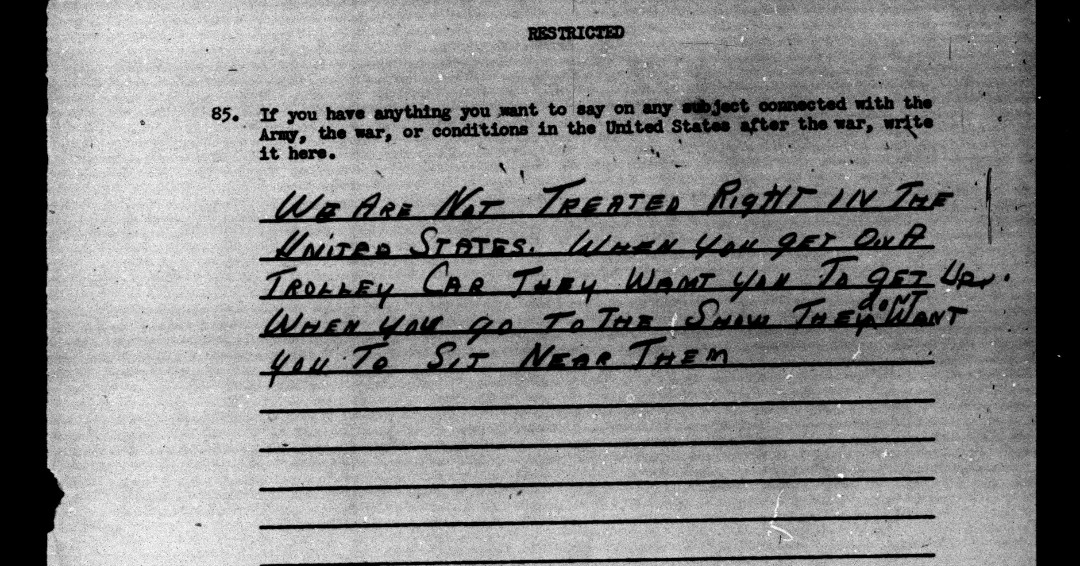 RESTRICTED
85. If you have anything you want to say on any subject connected with the
Army, the war, or conditions in the United States after the war, write
it here.
WE ARE NOT TREATED RIGHT IN THE
UNITED STATES. WHEN YOU GET ON A
TROLLEY CAR THEY WANT YOU TO GET UP.
WHEN YOU GO TO THE SHOW THEY DON'T WANT
YOU TO SIT NEAR THEM